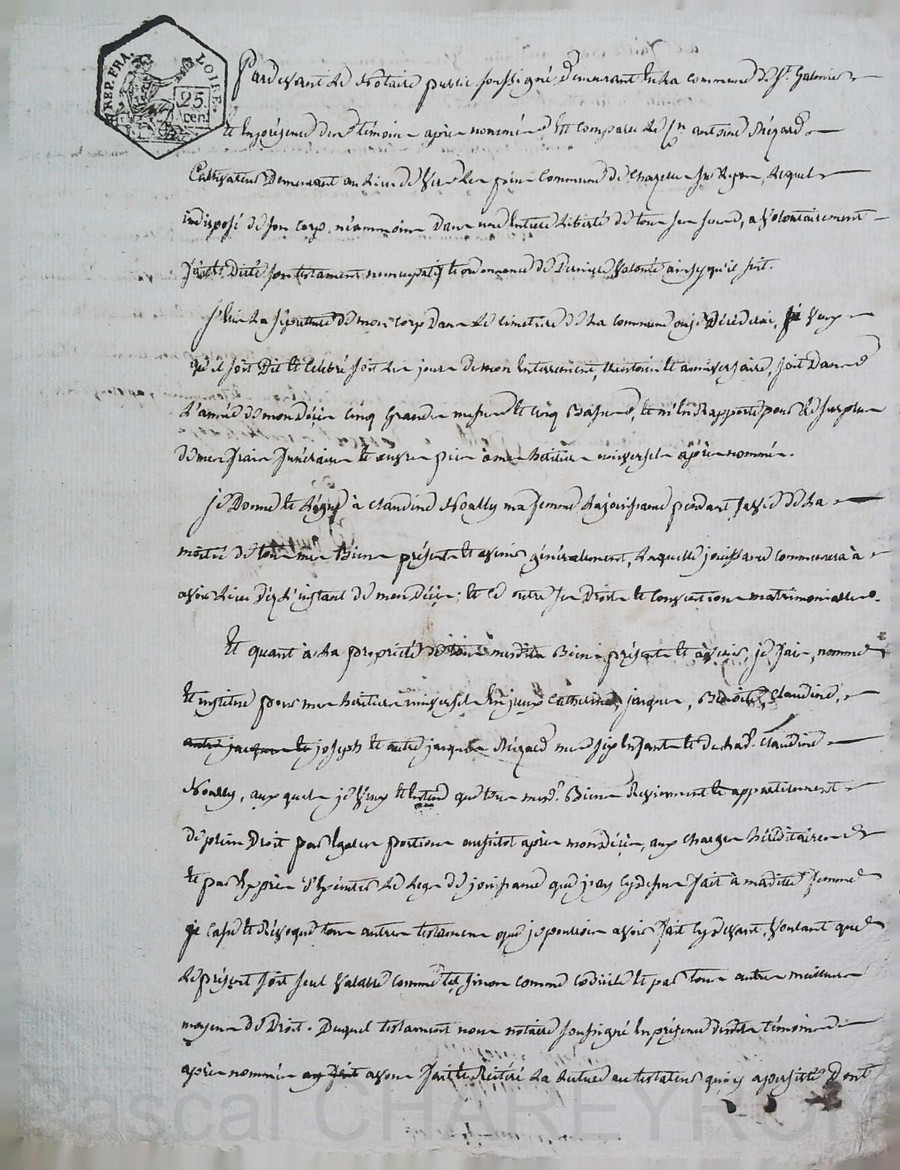 REP. FRA. LOIRE
25 cen
Pardevant Le Notaire public soussigné Demeurant En La Commune de St. Galmier
et En présence des témoins après nommés Est Comparu Le Cn antoine
Cultivateur Demeurant au Lieu de Commune de Chazelle Sur Lyon, Lequel
indisposé de son corps, néammoins Dans une Entiere Liberté de tous ses sens, a Volontairement
fait et Dicté son testament nuncupatif et ordonnance de Derniere Volonté ainsy qu'il suit.
La sépulture de mon corps Dans Le Cimetiere de La Commune où je Décéderai, je Veux
qu'il soit Dit et Célébré soit Les jours de mon Enterrement, et anniversaire, soit Dans
L'année de mon Décès Cinq Grandes messes et Cinq Basses, et m'En rapporte pour Le surplus
de mes frais funéraires et œuvres pies à mes héritiers universels après nommés.
je Donne et Légue à Claudine Noally ma femme La jouissance pendant sa vie de La
moitié de tous mes Biens présents et avenir généralement, Laquelle jouissance Commencera à
avoir Lieu Dès L'instant de mon Décès; et Ce outre ses Droits et Conventions matrimoniales.
Et quant à La propriété de tous mesdits Biens présents et avenir, je fais, nomme
et institue pour mes héritiers universels Catherine, jacques, Benoit, Claudine,
autre jacques et joseph et autre jacques mes six Enfants et de lad. Claudine
Noally, auxquels je Veux et Entend que tous mesd. Biens Reviennent et appartiennent
de plein Droit par Egales portions aussitot après mon Décès, aux Charges héréditaires
et par Exprès Le Legs de jouissance que j'ay Cydessus fait à madite femme
je Casse et Révoque tous autres testaments que je pourrois avoir fait Cydevant, Voulant que
Le présent soit seul Valable Comme tel, sinon Comme Codicile et par tous autres meilleurs
moyens de Droit. Duquel testament nous notaire soussigné En présence Desdits témoins
après nommés avons fait et Réitéré La Lecture au testateur qui y a persisté Dont
Pascal CHAREYRON